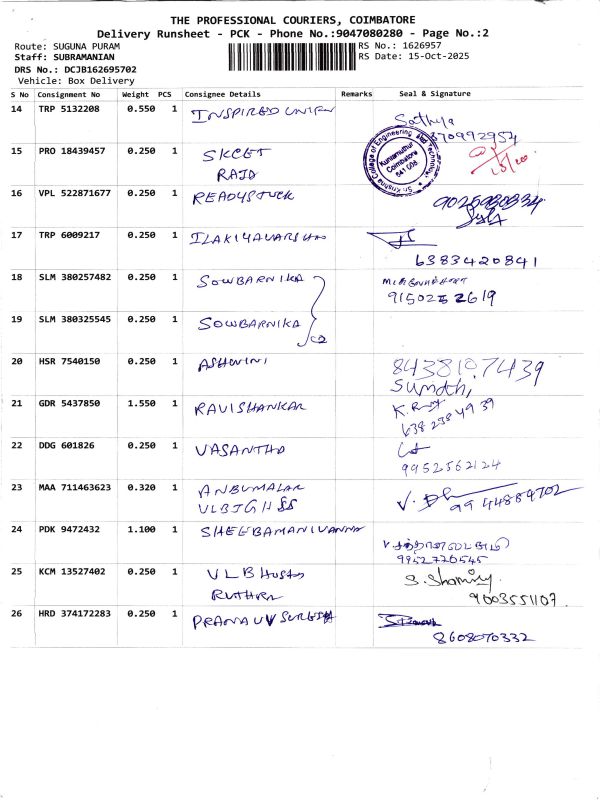 THE PROFESSIONAL COURIERS, COIMBATORE
Delivery Runsheet - PCK - Phone No.:9047080280 - Page No.:2
Route: SUGUNA PURAM
RS No.: 1626957
Staff: SUBRAMANIAN
RS Date: 15-Oct-2025
DRS No.: DCJB162695702
Vehicle: Box Delivery
S No Consignment No Weight PCS Consignee Details Remarks Seal & Signature
14 TRP 5132208 0.550 1 INSPIRED
Sathya
Sri Krishna College of Engineering and Technology
Kuniamuthur
Coimbatore
641 008
15 PRO 18439457 0.250 1 SKCET
RAJA
16 VPL 522871677 0.250 1 READYSTUCK
17 TRP 6009217 0.250 1
6383420841
18 SLM 380257482 0.250 1 SOWBARNIKA
19 SLM 380325545 0.250 1 SOWBARNIKA
20 HSR 7540150 0.250 1 ASHWINI
8438107439
21 GDR 5437850 1.550 1 RAVISHANKAR
638 238 49 39
22 DDG 601826 0.250 1 VASANTHA
9952562124
23 MAA 711463623 0.320 1 ANBUMALAR
9944889702
24 PDK 9472432 1.100 1 SHEEBAMANIVANNA
9952770545
25 KCM 13527402 0.250 1 VLB
RUTHRA
9003551107
26 HRD 374172283 0.250 1 PRANAUV SURESH
8608070332